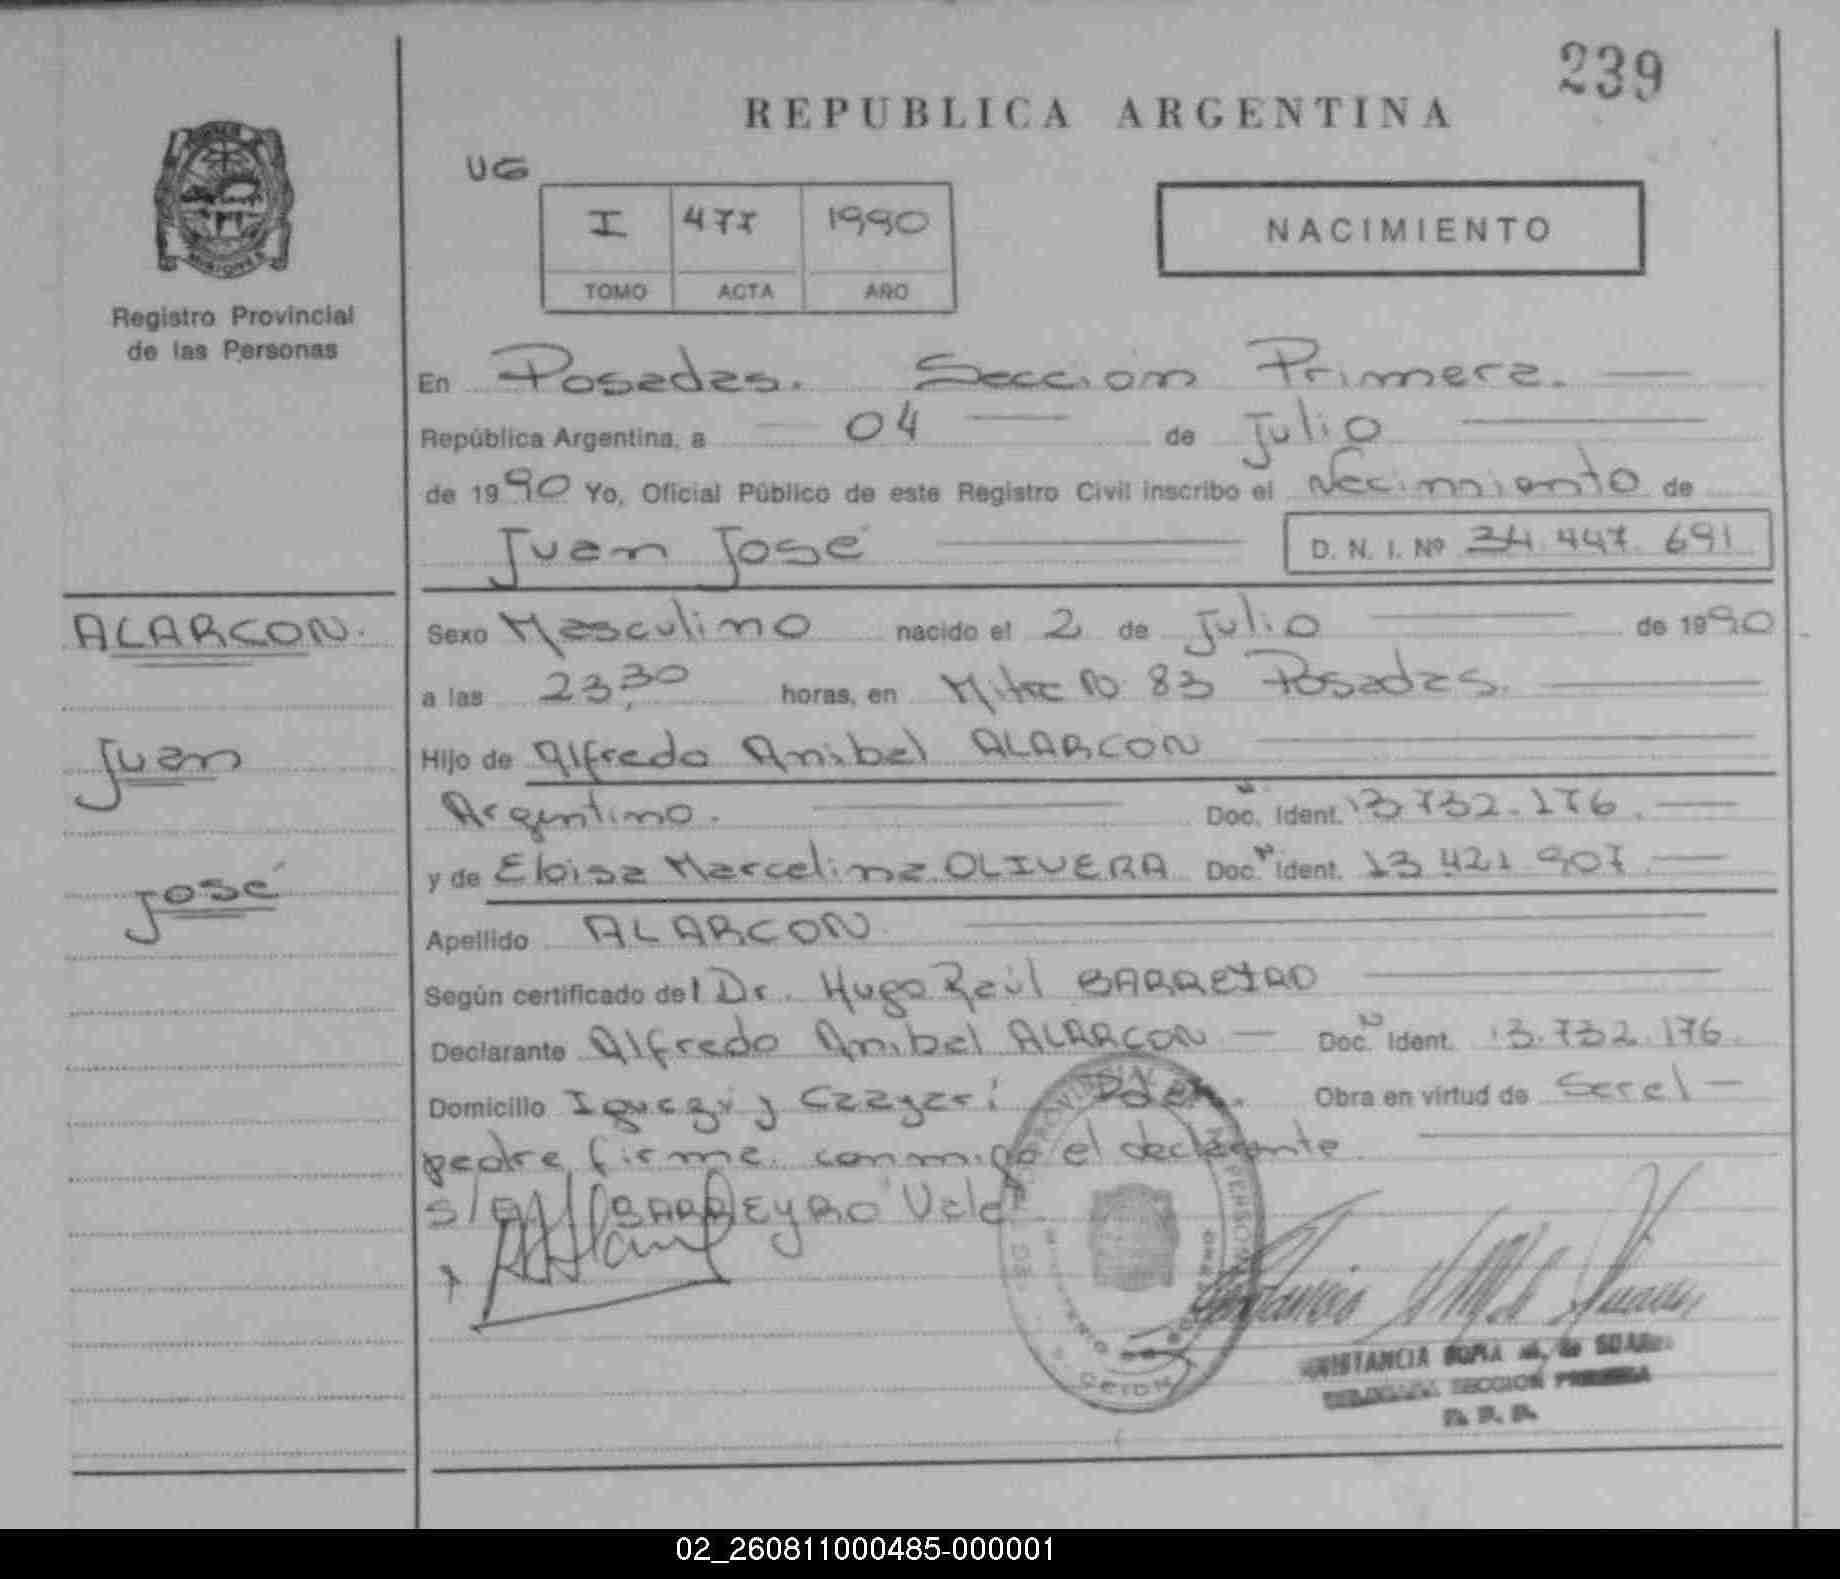 239
REPUBLICA ARGENTINA
UG
I 477 1990
TOMO ACTA AÑO
NACIMIENTO
Registro Provincial
de las Personas
En Posadas. Sección Primera.
República Argentina, a 04 de Julio
de 1990 Yo, Oficial Público de este Registro Civil inscribo el Nacimiento de
Juan José D. N. I. Nº 34.447.691
ALARCON.
Juan
José
Sexo Masculino nacido el 2 de Julio de 1990
a las 23,30 horas, en Mitre N 83 Posadas.
Hijo de Alfredo Anibal ALARCON
Argentino. Doc. Ident. 13.732.176.
y de Eloisa Marcelina OLIVERA Doc. Ident. 13.421.907
Apellido ALARCON
Según certificado del Dr. Hugo Raúl BARREYRO
Declarante Alfredo Anibal ALARCON Doc. Ident. 13.732.176.
Domicilio Iguazú y Caazapá Obra en virtud de Ser el
padre, firma conmigo el declarante
S/R BARREYRO Vale
DELEGADA SECCION PRIMERA
02_260811000485-000001